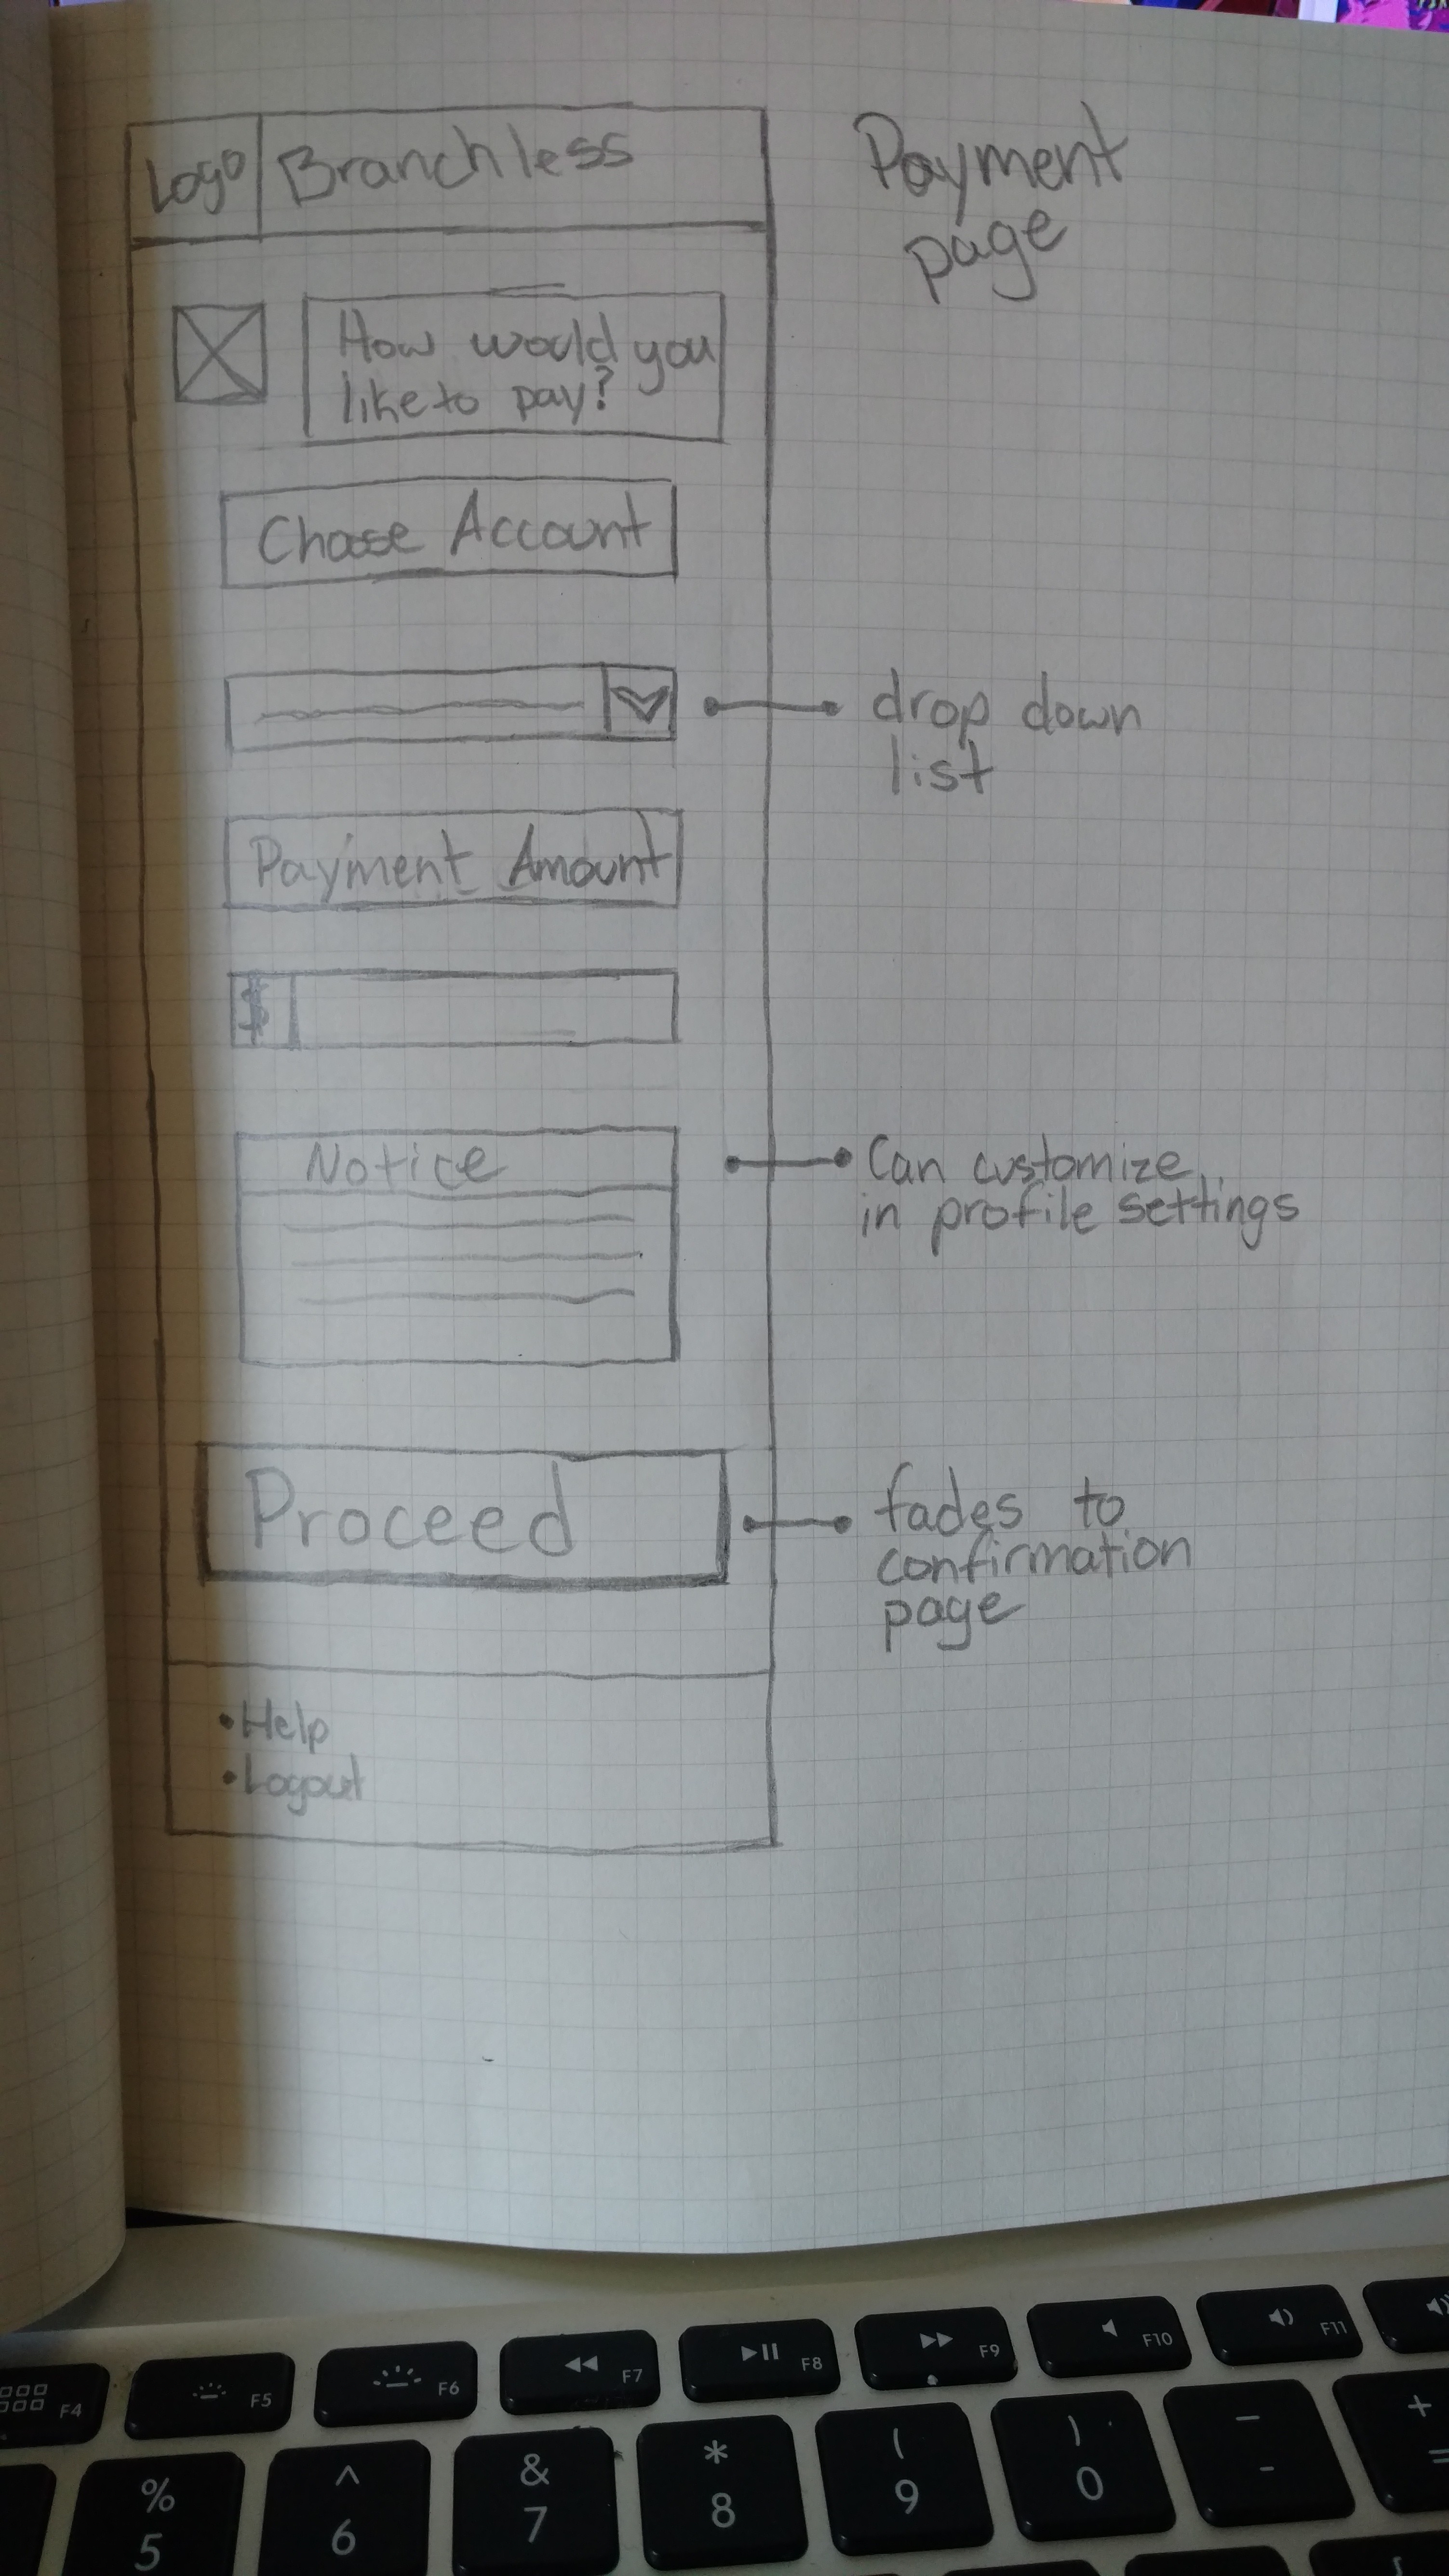 Logo Branchless
Payment
page
How would you
like to pay?
Choose Account
drop down
list
Payment Amount
$
Notice
Can customize
in profile settings
Proceed
fades to
confirmation
page
•Help
•Logout
F4 F5 F6 F7 F8 F9 F10 F11
% ^ & * ( ) _ +
5 6 7 8 9 0 - =